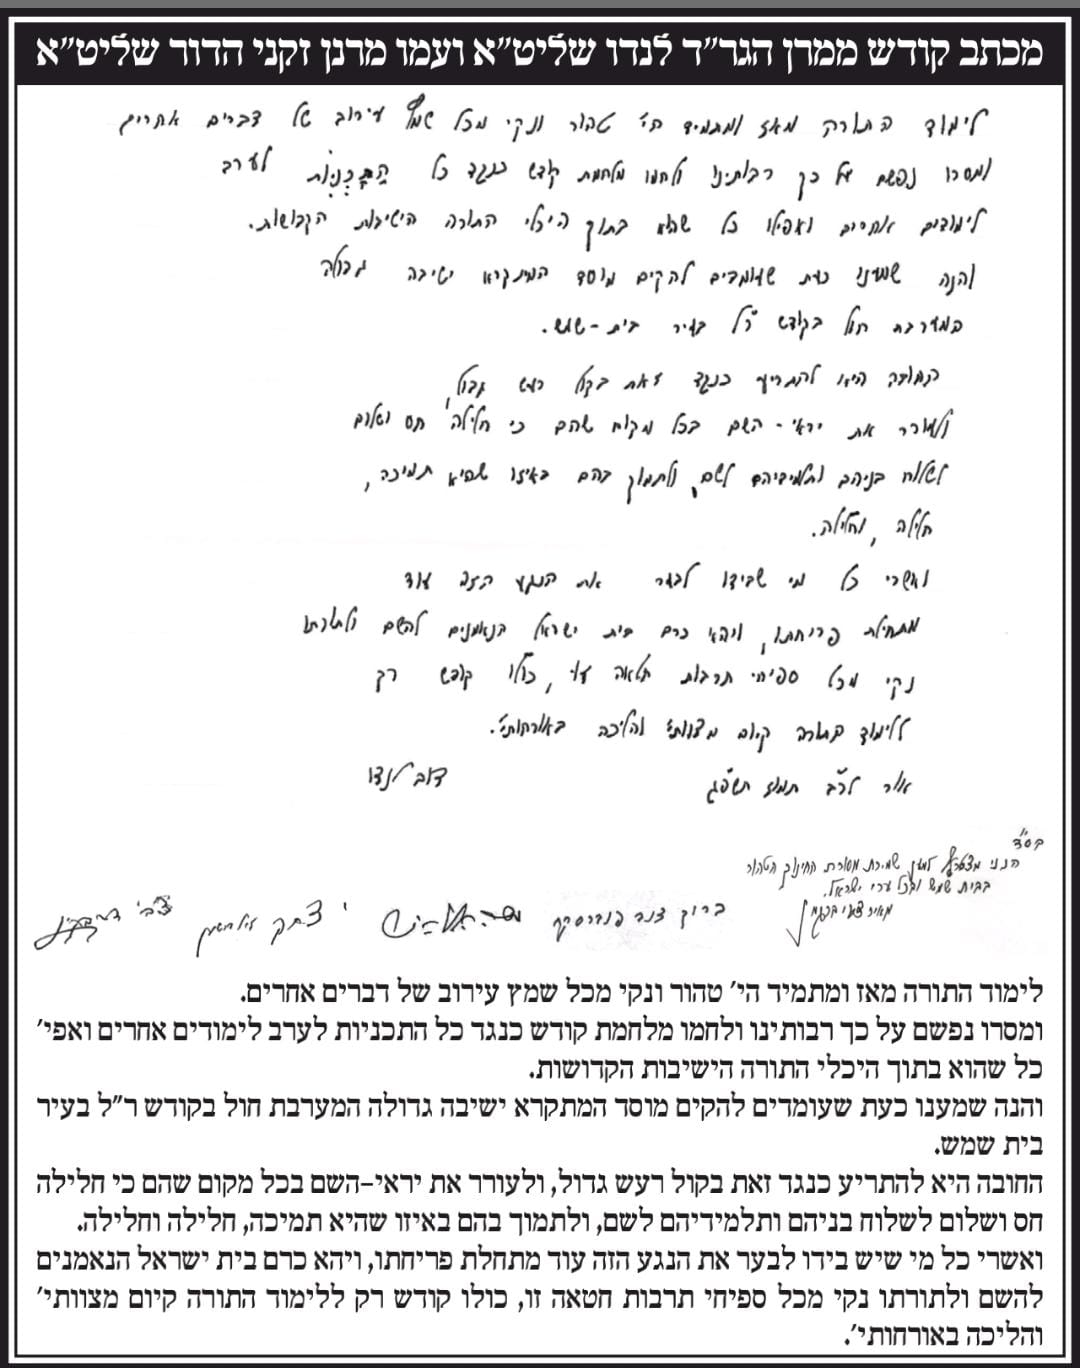 מכתב קודש ממרן הגר״ד לנדו שליט״א ועמו מרנן זקני הדור שליט״א
לימוד התורה מאז ומתמיד הי׳ טהור ונקי מכל שמץ עירוב של דברים אחרים
ומסרו נפשם על כך רבותינו ולחמו מלחמת קודש כנגד כל התכניות לערב
לימודים אחרים ואפילו כל שהוא בתוך היכלי התורה הישיבות הקדושות.
והנה שמענו כעת שעומדים להקים מוסד המתקרא ישיבה גדולה
המערבת חול בקודש ר״ל בעיר בית-שמש.
החובה היא להתריע כנגד זאת בקול רעש גדול,
ולעורר את יראי-השם בכל מקום שהם כי חלילה חס ושלום
לשלוח בניהם ותלמידיהם לשם, ולתמוך בהם באיזו שהיא תמיכה,
חלילה, וחלילה.
ואשרי כל מי שבידו לבער את הנגע הזה עוד
מתחלת פריחתו, ויהא כרם בית ישראל הנאמנים להשם ולתורתו
נקי מכל ספיחי תרבות חטאה זו, כולו קודש רק
ללימוד התורה קיום מצוותי׳ והליכה באורחותי׳.
אור לי״ב תמוז תשפ״ג
דוב לנדו
בס״ד
הנני מצטרף למען שמירת מסורת החינוך הטהור
בבית שמש ובכל ערי ישראל.
מאיר צבי ברגמן
ברוך דוב פוברסקי
יצחק
צבי
לימוד התורה מאז ומתמיד הי׳ טהור ונקי מכל שמץ עירוב של דברים אחרים.
ומסרו נפשם על כך רבותינו ולחמו מלחמת קודש כנגד כל התכניות לערב לימודים אחרים ואפי׳
כל שהוא בתוך היכלי התורה הישיבות הקדושות.
והנה שמענו כעת שעומדים להקים מוסד המתקרא ישיבה גדולה המערבת חול בקודש ר״ל בעיר
בית שמש.
החובה היא להתריע כנגד זאת בקול רעש גדול, ולעורר את יראי-השם בכל מקום שהם כי חלילה
חס ושלום לשלוח בניהם ותלמידיהם לשם, ולתמוך בהם באיזו שהיא תמיכה, חלילה וחלילה.
ואשרי כל מי שיש בידו לבער את הנגע הזה עוד מתחלת פריחתו, ויהא כרם בית ישראל הנאמנים
להשם ולתורתו נקי מכל ספיחי תרבות חטאה זו, כולו קודש רק ללימוד התורה קיום מצוותי׳
והליכה באורחותי׳.